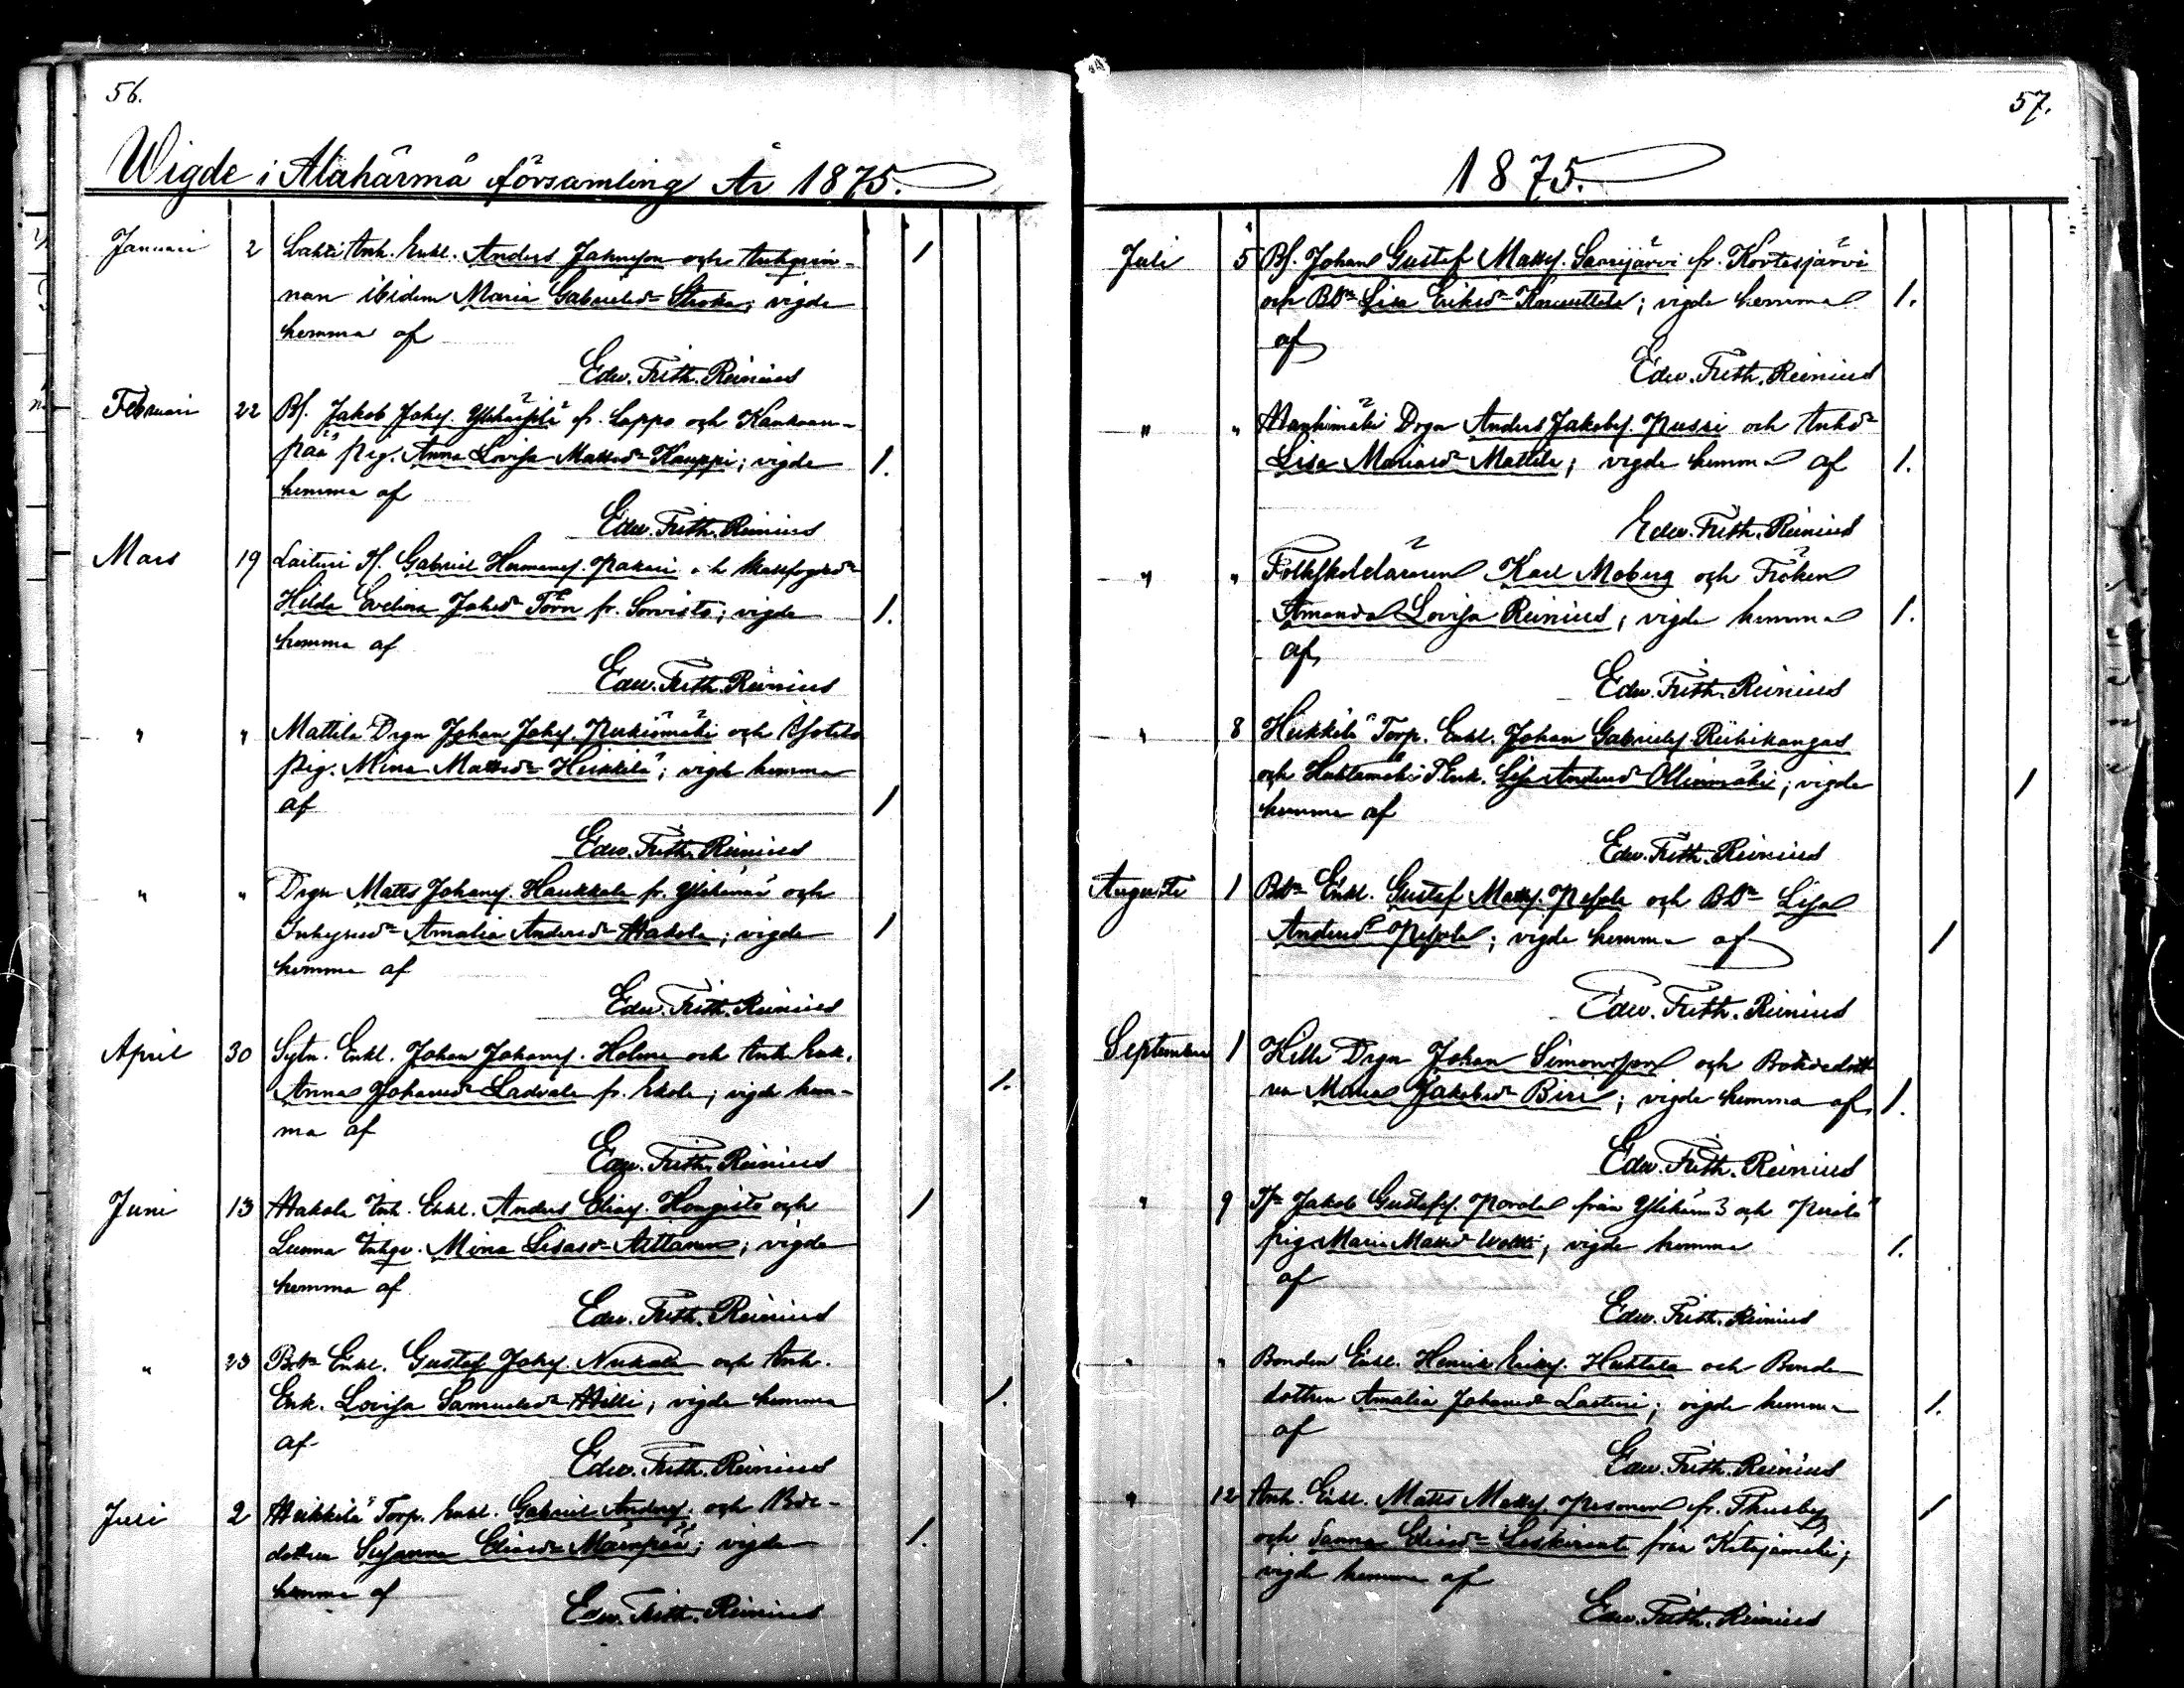 56.
Wigde i Alahärmä församling År 1875.
Januari 2 Lahti Inh. Enkl. Anders Johansson och Inhqvin-
nan ibidem Maria Gabrielsdr ; vigde 1
hemma af
Edw. Frith. Reinius
Februari 22 Bs. Jakob Johss. fr. Lappo och Kankaan-
pää pig. Anna Lovisa Mattsdr Kauppi; vigde 1.
hemma af
Edw. Frith. Reinius
Mars 19 Laituri Gabriel Hermanss. Pakari och
Hilda Evelina Johsdr Törn fr. ; vigde 1.
hemma af
Edw. Frith. Reinius
" " Mattila Drgn Johan Johss. och
pig. Mina Mattsdr Heikkilä; vigde hemma
af 1
Edw. Frith. Reinius
" " Drgn Matts Johanss. Haukkala fr. Ylihärmä och
Amalia Andersdr Hakola; vigde 1
hemma af
Edw. Frith. Reinius
April 30 Sytn. Enkl. Johan Johanss. Holma och Inh. Enk.
Anna Johansdr Ladvala fr. Ekola; vigde hem- 1.
ma af
Edw. Frith. Reinius
Juni 13 Hakola Inh. Enkl. Anders Eliass. Hongisto och 1
Luoma Inhqv. Mina Lisasdr ; vigde
hemma af
Edw. Frith. Reinius
" 23 Bdn Enkl. Gustaf Johss. Nukala och Inh.
Enk. Lovisa Samuelsdr Hilli; vigde hemma 1.
af
Edw. Frith. Reinius
Juli 2 Heikkilä Torp. Enkl. Gabriel Anderss. och Bde-
dottren Susanna Eliasdr Määnpää; vigde 1.
hemma af
Edw. Frith. Reinius
57.
1875.
Juli 5 Bs. Johan Gustaf Matts. Saarijärvi fr. Kortesjärvi
och Bdr Lisa Eriksdr ; vigde hemma 1.
af
Edw. Frith. Reinius
" " Hanhimäki Drgn Anders Jakobs. Passi och Inhdr
Lisa Mariasdr Mattila; vigde hemma af 1.
Edw. Frith. Reinius
" " Folkskoleläraren Karl Moberg och Fröken
Amanda Lovisa Reinius; vigde hemma 1.
af
Edw. Frith. Reinius
" 8 Heikkilä Torp. Enkl. Johan Gabriels. Riihikangas
och Huhtamäki T. Enk. Lisa Andersdr Ollinmäki; vigde 1
hemma af
Edw. Frith. Reinius
Augusti 1 Bdn Enkl. Gustaf Matts. Pesola och Bdr Lisa
Andersdr Pesola; vigde hemma af 1
Edw. Frith. Reinius
September 1 Hilli Drgn Johan Simonsson och Bondedott-
ren Maria Jakobsdr Biri; vigde hemma af 1.
Edw. Frith. Reinius
" 9 Jakob Gustafss. från Ylihärmä och
pig. Maria Mattsdr ; vigde hemma 1.
af
Edw. Frith. Reinius
" " Bonden Enkl. Henrik Erikss. Huhtala och Bonde
dottren Amalia Johansdr Laituri; vigde hemma 1.
af
Edw. Frith. Reinius
" 12 Inh. Enkl. Matts Matts. Pesonen fr. Thusby 1
och Sanna Eliasdr från Katajamäki;
vigde hemma af
Edw. Frith. Reinius